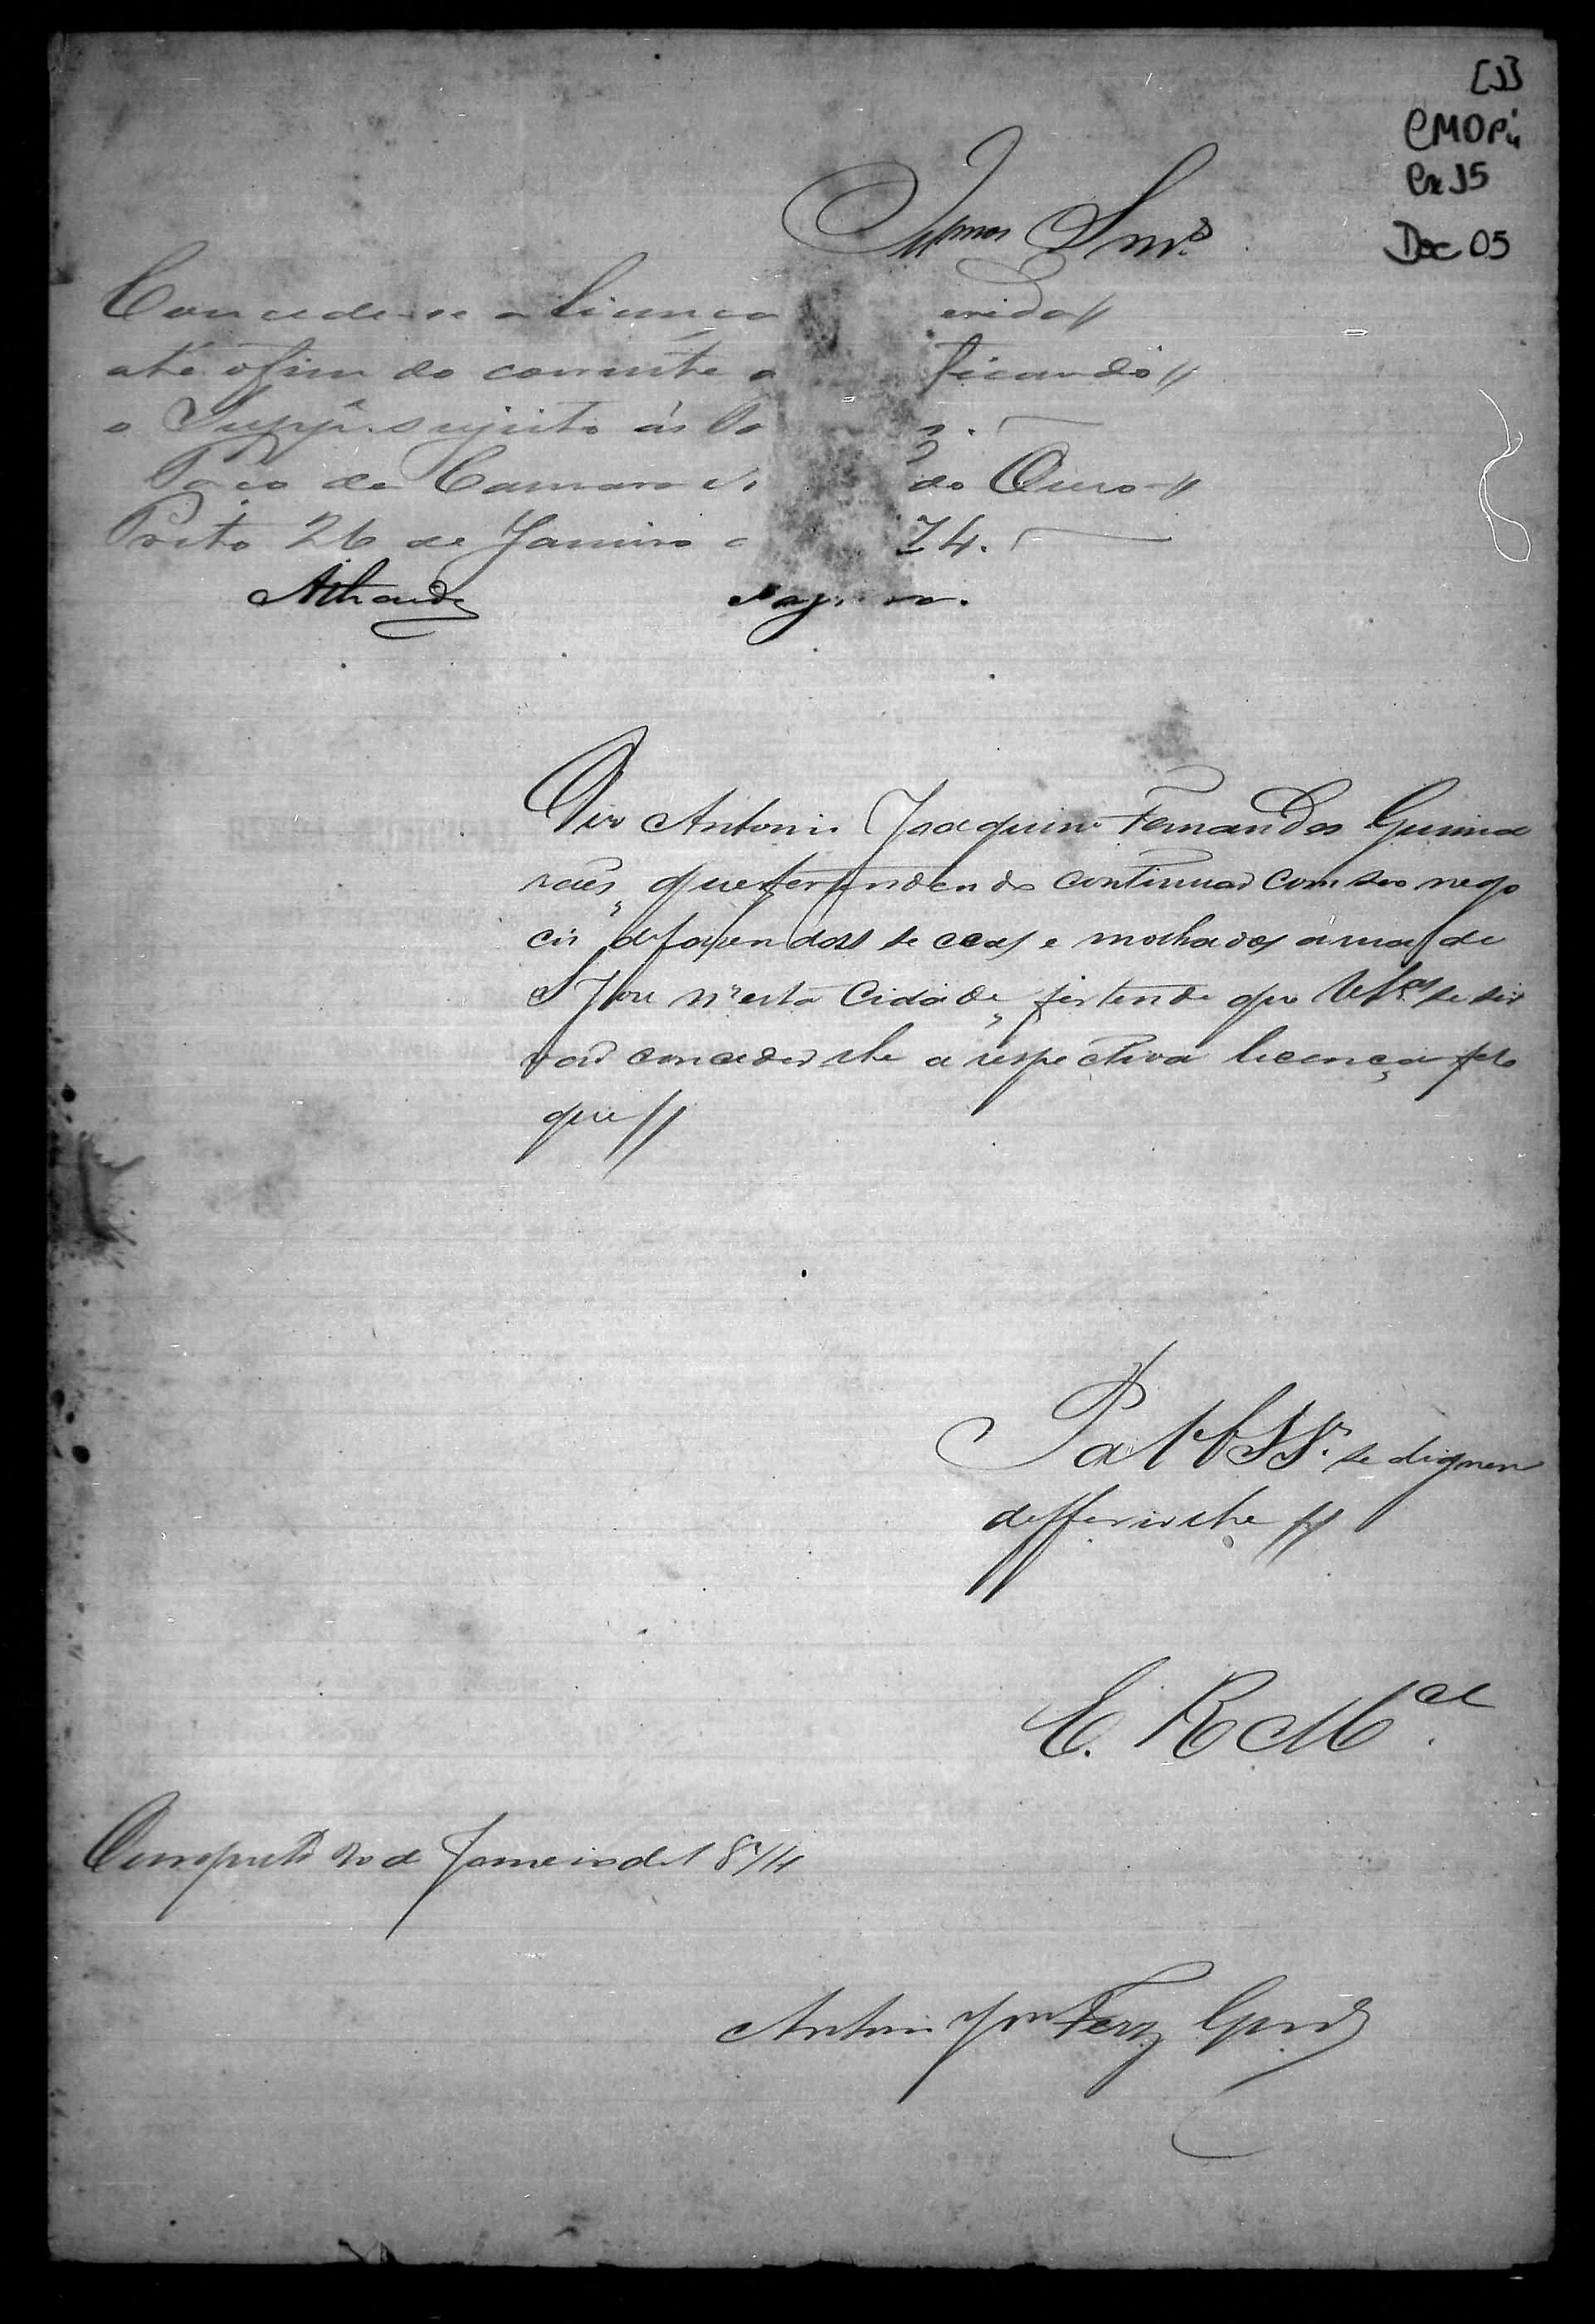 [1]
CMOP
Cx 15
Doc 05
Illmos Snr.s
Concede-se a licença erida//
até o fim do corrente a ficando//
o Supp.e sujeito ás Po s.
Paço da Camara do Ouro//
Preto 26 de Janeiro 74.
Diz Antonio Joaquim Fernandes Guima
raes, que pertendendo continuar com seo nego
cio de fasendas seccas e molhados á rua de
S Jose n'esta Cidade, pertende que VSas se sir
vao conceder lhe a respectiva licença pelo
que//
P a VVSSas se dignem
defferir lhe //
E. R Mce.
Ouropreto 20 de Janeiro de 1874
Antonio Jm Ferz Gmes